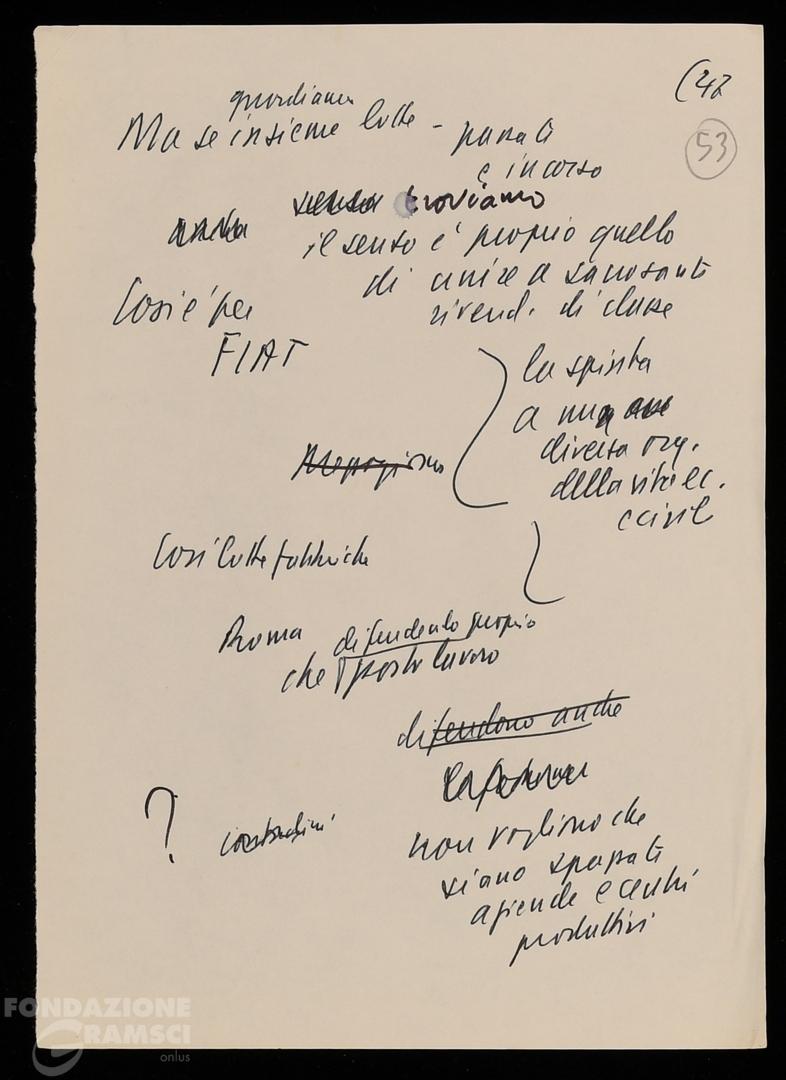 (42
53
guardiamo
Ma se insieme lotte - passate
e in corso
senza troviamo
il senso è proprio quello
di unire a sacrosante
rivend. di classe
Così è per
FIAT
la spinta
a una
diversa org.
della vita ec.
e civile
Così lotte fabbriche
Roma difendendo proprio
che posto lavoro
difendono anche
non vogliono che
siano spazzate
aziende e centri
produttivi
?
contadini
FONDAZIONE
GRAMSCI
onlus